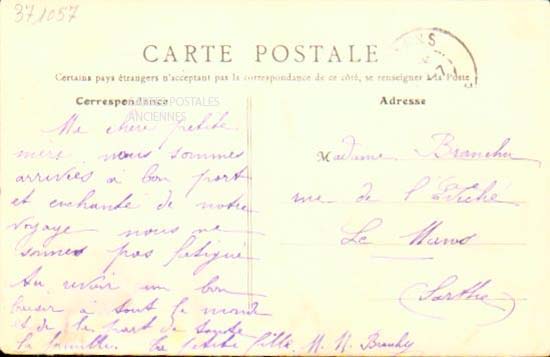 37,1057
CARTE POSTALE
Certains pays étrangers n'acceptant pas la correspondance de ce côté, se renseigner à la Poste
Correspondance
CARTES POSTALES
ANCIENNES
Adresse
Ma chere petite
mère nous sommes
arrivées à bon port
et enchanté de notre
voyage nous ne
sommes pas fatigué
Au revoir un bon
baiser à tout le monde
et de la part de toute
la famille. La petite fille M. N.
Madame
rue de l'Evêché
Le Mans
(Sarthe)